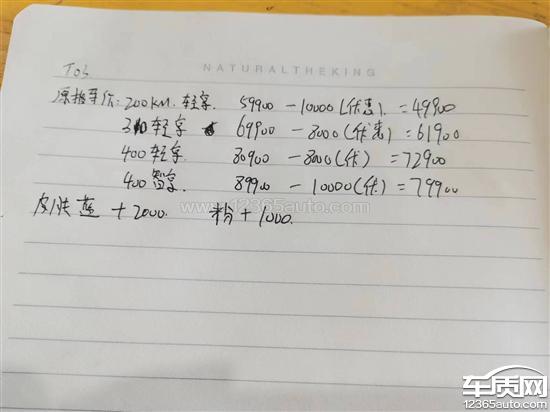 T03
NATURALTHEKING
裸车价: 200KM. 轻享. 59900 - 10000(优惠). = 49900
310轻享 69900 - 8000(优惠) = 61900
400轻享. 80900 - 8000(优) = 72900
400智享. 89900 - 10000(优) = 79900
www.12365auto.com
蓝 + 2000. 粉 + 1000.
车质网
12365auto.com